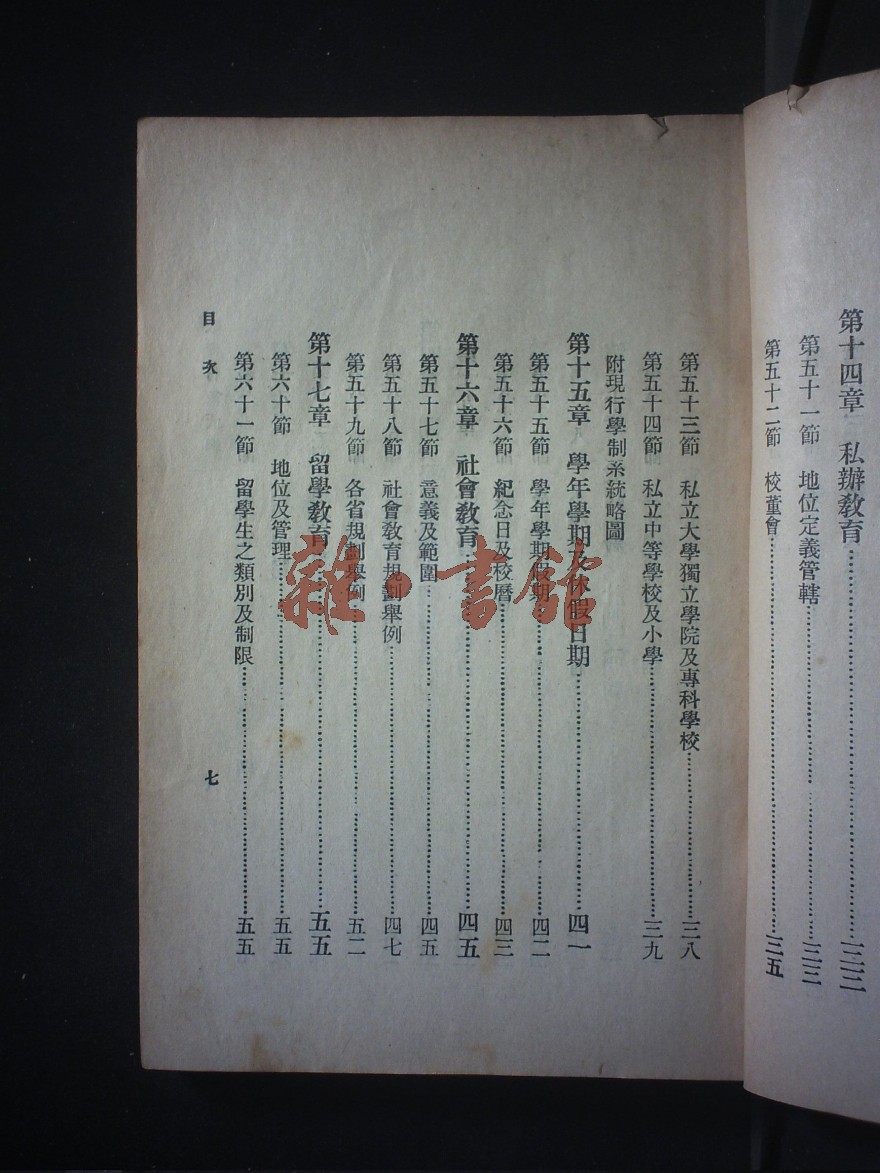 第十四章　私辦教育……三三
第五十一節　地位定義管轄……三三
第五十二節　校董會……三五
第五十三節　私立大學獨立學院及專科學校……三八
第五十四節　私立中等學校及小學……三九
附現行學制系統略圖
第十五章　學年學期及休假日期……四一
第五十五節　學年學期假期……四二
第五十六節　紀念日及校曆……四三
第十六章　社會教育……四五
第五十七節　意義及範圍……四五
第五十八節　社會教育規劃舉例……四七
第五十九節　各省規劃舉例……五二
第十七章　留學教育……五五
第六十節　地位及管理……五五
第六十一節　留學生之類別及制限……五五
目次
七
雜書館